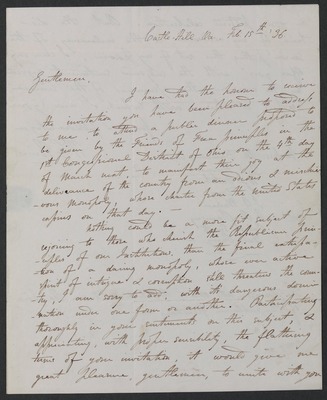 Castle Hill Va. Feb. 15th '36
Gentlemen,
I have had the honour to receive
the invitation you have been pleased to address
to me to attend a public dinner proposed to
be given by the Friends of Free principles in the
1st Congressional District of Ohio on the 4th day
of March next to manifest their joy at the
deliverance of the country from an odious & mischie-
-vous monopoly, whose charter from the United States
expires on that day. —
Nothing could be a more fit subject of
rejoicing to those who cherish the Republican prin-
-ciples of our Institutions, than the final extirpa-
-tion of a daring monopoly, whose ever active
spirit of intrigue & corruption still threatens the coun-
try, I am sorry to add, with its dangerous domi-
-nation under one form or another. Participating
thoroughly in your sentiments on this subject, &
appreciating, with proper sensibility, the flattering
terms of your invitation, it would give me
great pleasure, gentlemen, to unite with you